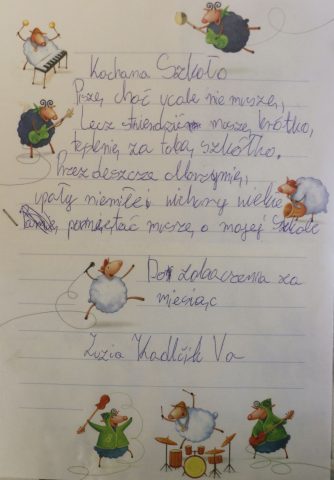 Kochana Szkoło
Piszę, choć wcale nie muszę,
Lecz stwierdzić muszę krótko,
tęsknię za tobą szkółko.
Przez deszcze olbrzymie,
upały niemiłe i wichury wielkie
pamiętać muszę o mojej Szkole
Do zobaczenia za
miesiąc
Zuzia Kadlčik Va